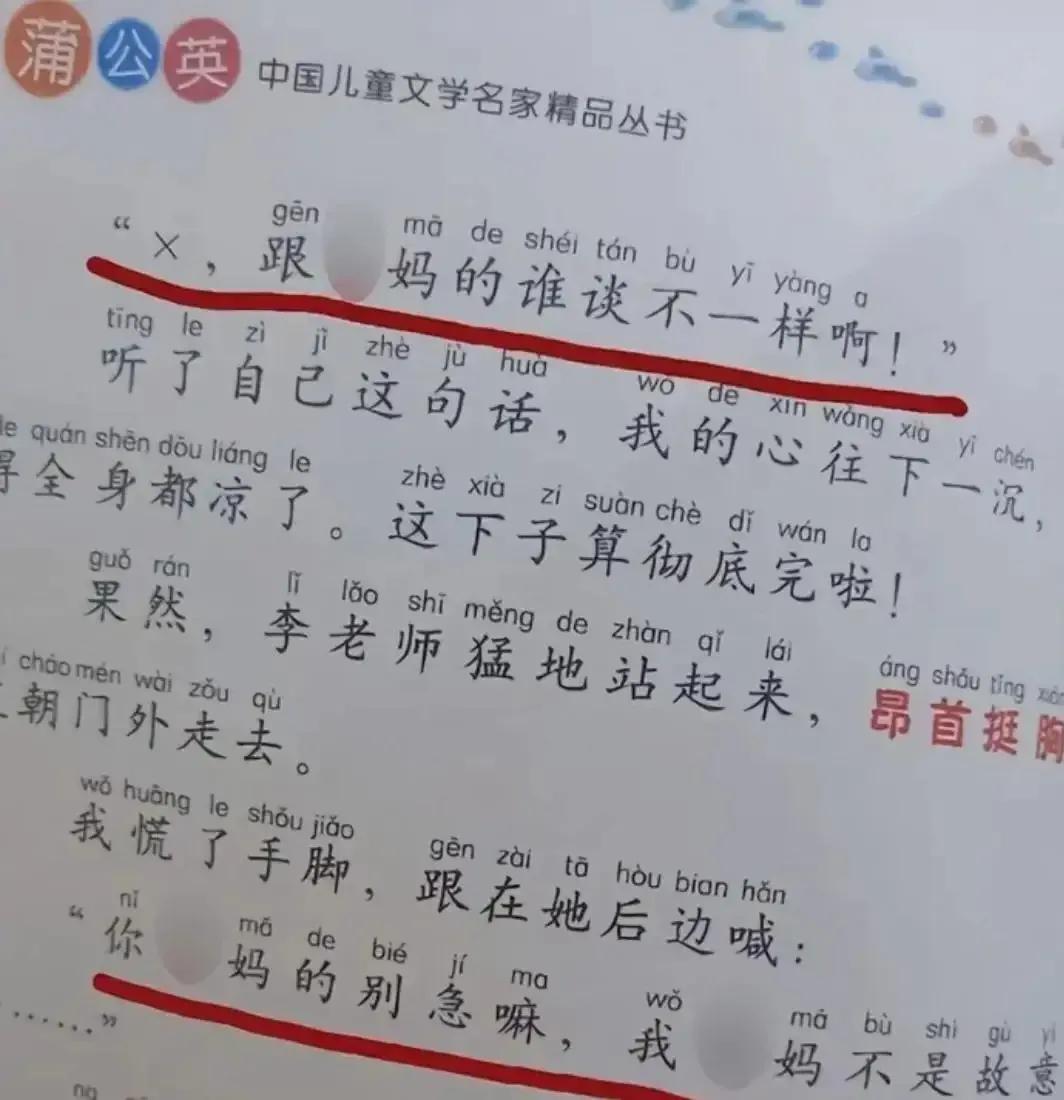 蒲公英 中国儿童文学名家精品丛书
gēn mā de shéi tán bù yī yàng a
“×，跟 妈的谁谈不一样啊！”
tīng le zì jǐ zhè jù huà wǒ de xīn wǎng xià yī chén
听了自己这句话，我的心往下一沉，
quán shēn dōu liáng le zhè xià zi suàn chè dǐ wán la
得全身都凉了。这下子算彻底完啦！
guǒ rán lǐ lǎo shī měng de zhàn qǐ lái áng shǒu tǐng
果然，李老师猛地站起来，昂首挺胸
cháo mén wài zǒu qù
朝门外走去。
wǒ huāng le shǒu jiǎo gēn zài tā hòu bian hǎn
我慌了手脚，跟在她后边喊：
nǐ mā de bié jí ma wǒ mā bù shì gù yì
“你 妈的别急嘛，我 妈不是故意
……”